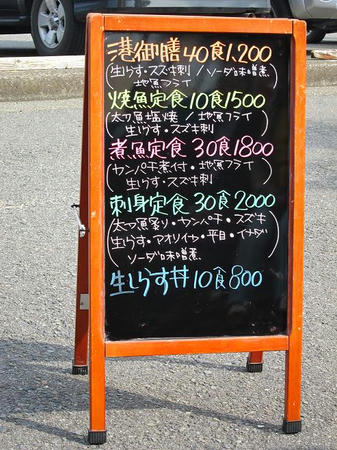 港御膳 40食 1,200
(生らす・スズキ刺 / ソーダ味噌煮
地魚フライ)
焼魚定食 10食 1500
(太刀魚塩焼 / 地魚フライ
生らす・スズキ刺)
煮魚定食 30食 1800
(ヤンパチ煮付・地魚フライ
生らす・スズキ刺)
刺身定食 30食 2000
(太刀魚炙り・ヤンパチ・スズキ
生らす・アオリイカ・平目・イナダ
ソーダ味噌煮)
生しらす丼 10食 800